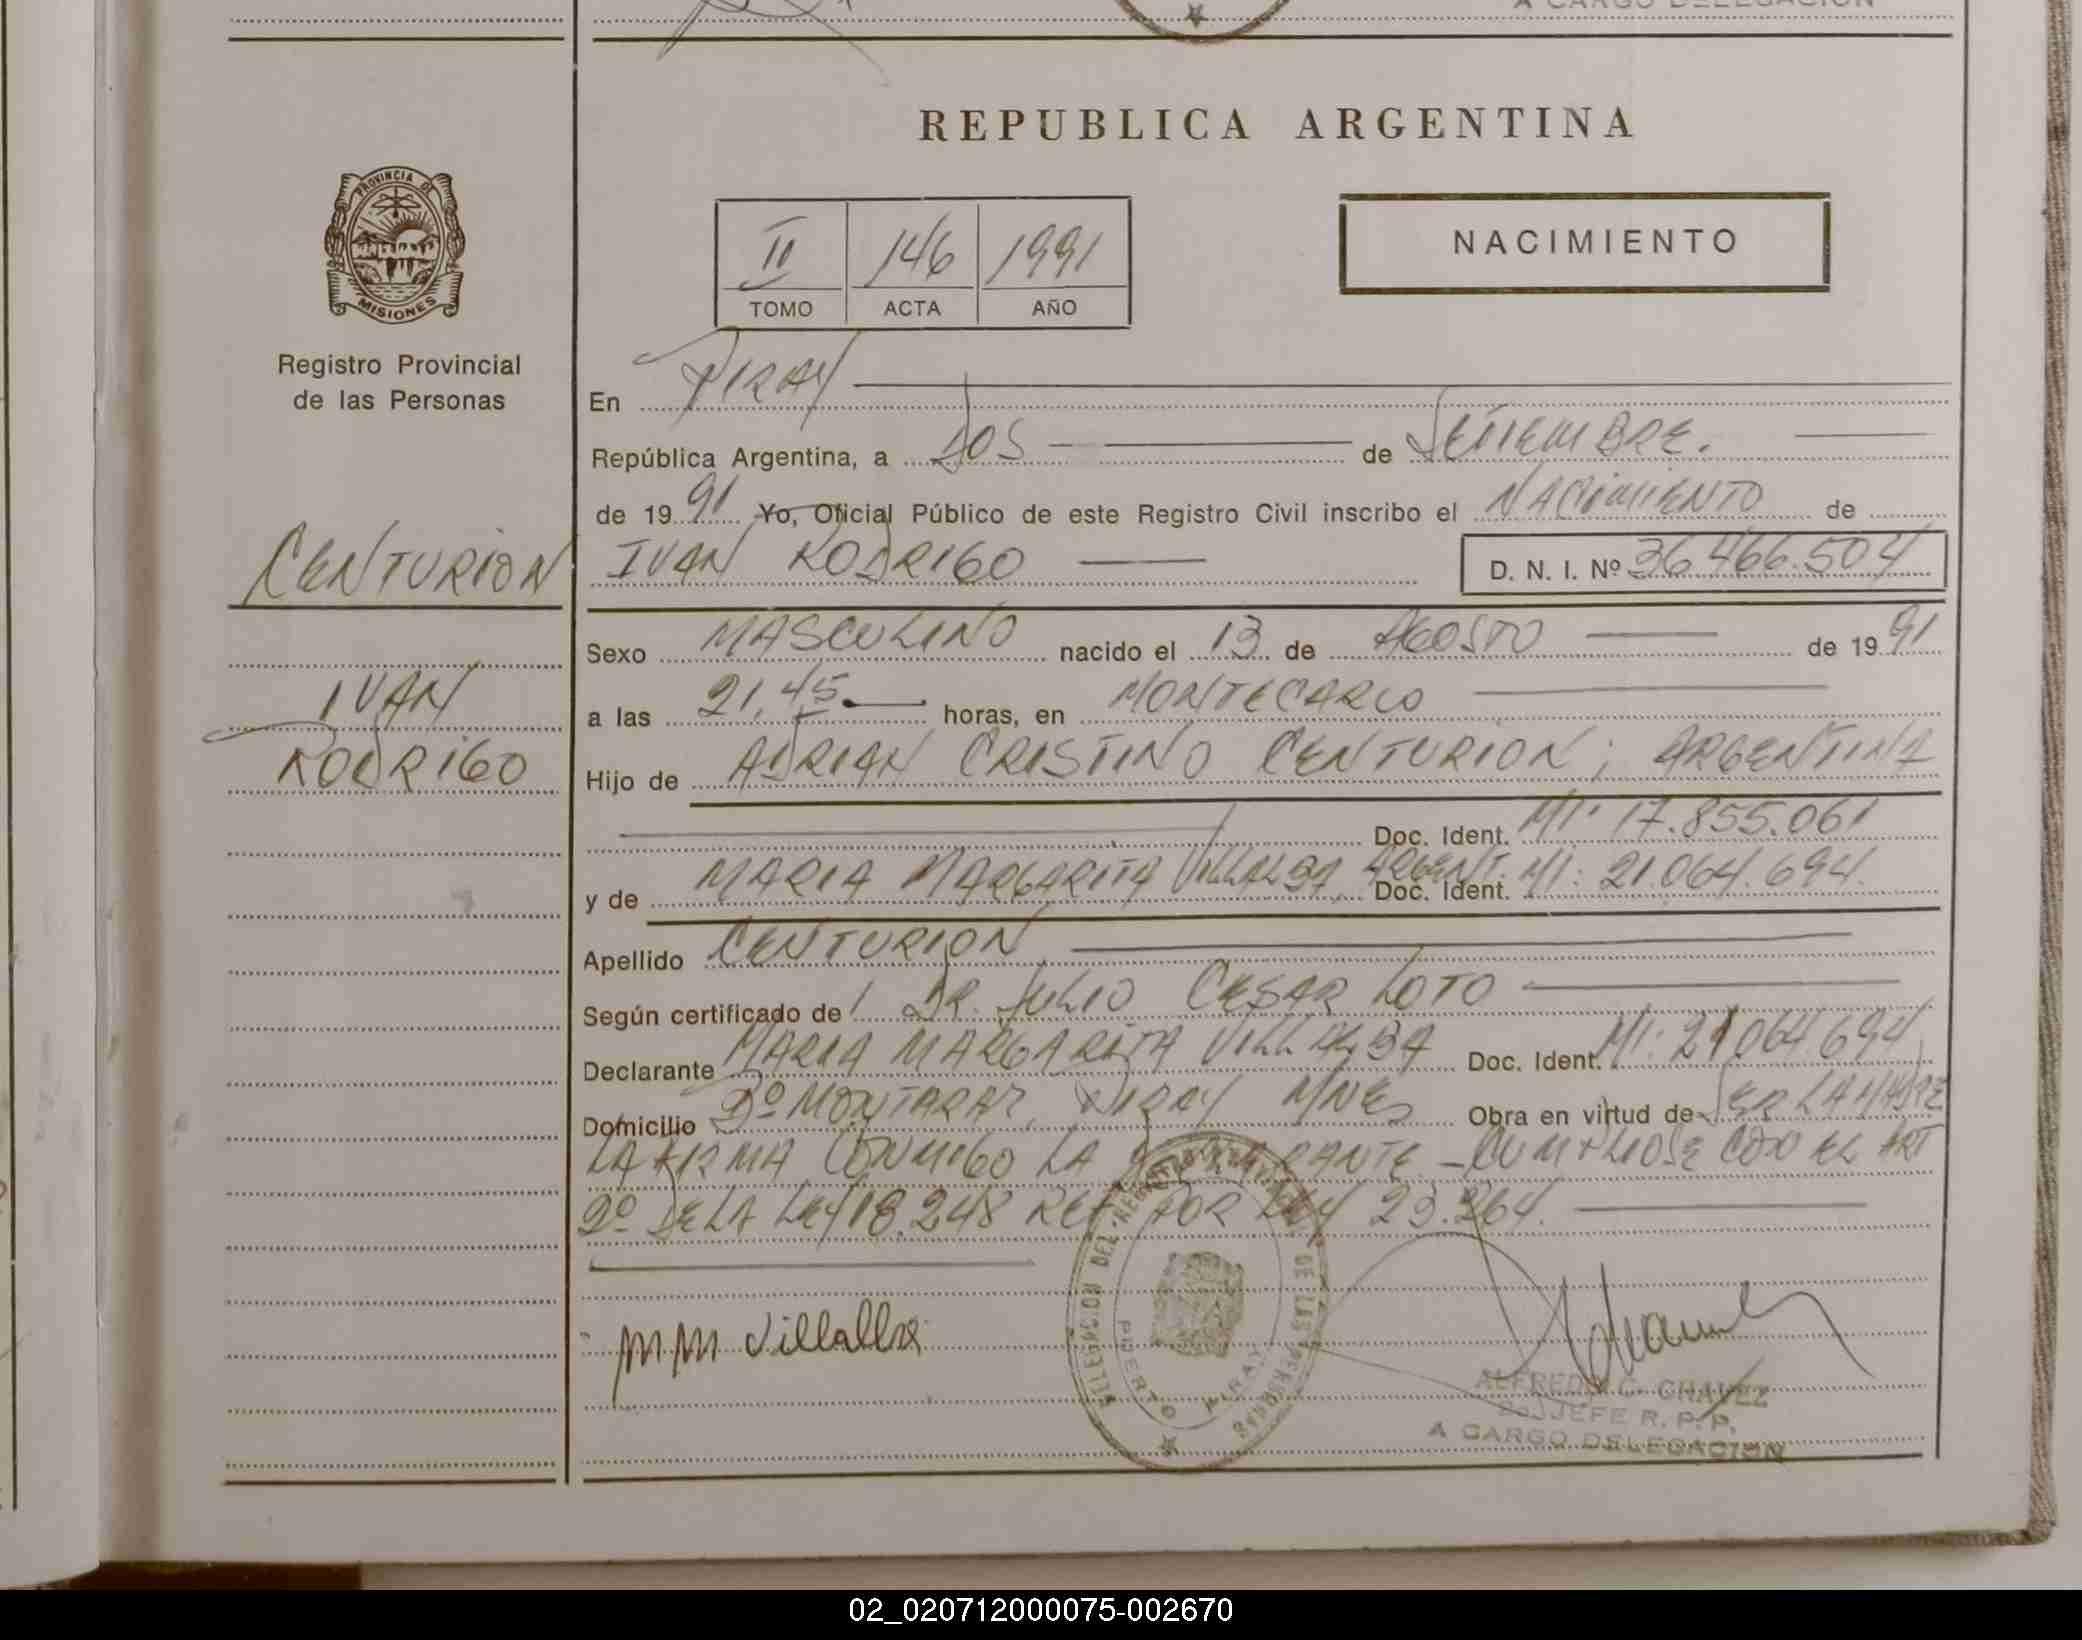 A CARGO DELEGACION
REPUBLICA ARGENTINA
PROVINCIA DE
MISIONES
Registro Provincial
de las Personas
II 146 1991
TOMO ACTA AÑO
NACIMIENTO
En PIRAY
República Argentina, a DOS de SETIEMBRE.
de 1991 Yo, Oficial Público de este Registro Civil inscribo el NACIMIENTO de
CENTURION
IVAN RODRIGO D. N. I. Nº 36.466.504
Sexo MASCULINO nacido el 13 de AGOSTO de 1991
IVAN
a las 21,45 horas, en MONTECARLO
RODRIGO
Hijo de ADRIAN CRISTINO CENTURION; ARGENTINA
Doc. Ident. MI: 17.855.061
y de MARIA MARGARITA VILLALBA ARGENT. Doc. Ident. MI: 21.064.694.
Apellido CENTURION
Según certificado de DR. JULIO CESAR LOTO
Declarante MARIA MARGARITA VILLALBA Doc. Ident. MI: 21064694
Domicilio Bº MONTARAZ, PIRAY MNES Obra en virtud de SER LA MADRE
LA FIRMA CONMIGO LA DECLARANTE - CUMPLIOSE CON EL ART
2º DE LA LEY 18.248 REF POR LEY 23.264.
DELEGACION DEL REGISTRO DE LAS PERSONAS
PUERTO PIRAY
MM Villalba
ALFREDO C. CHAVEZ
JEFE R. P. P.
A CARGO DELEGACION
02_020712000075-002670